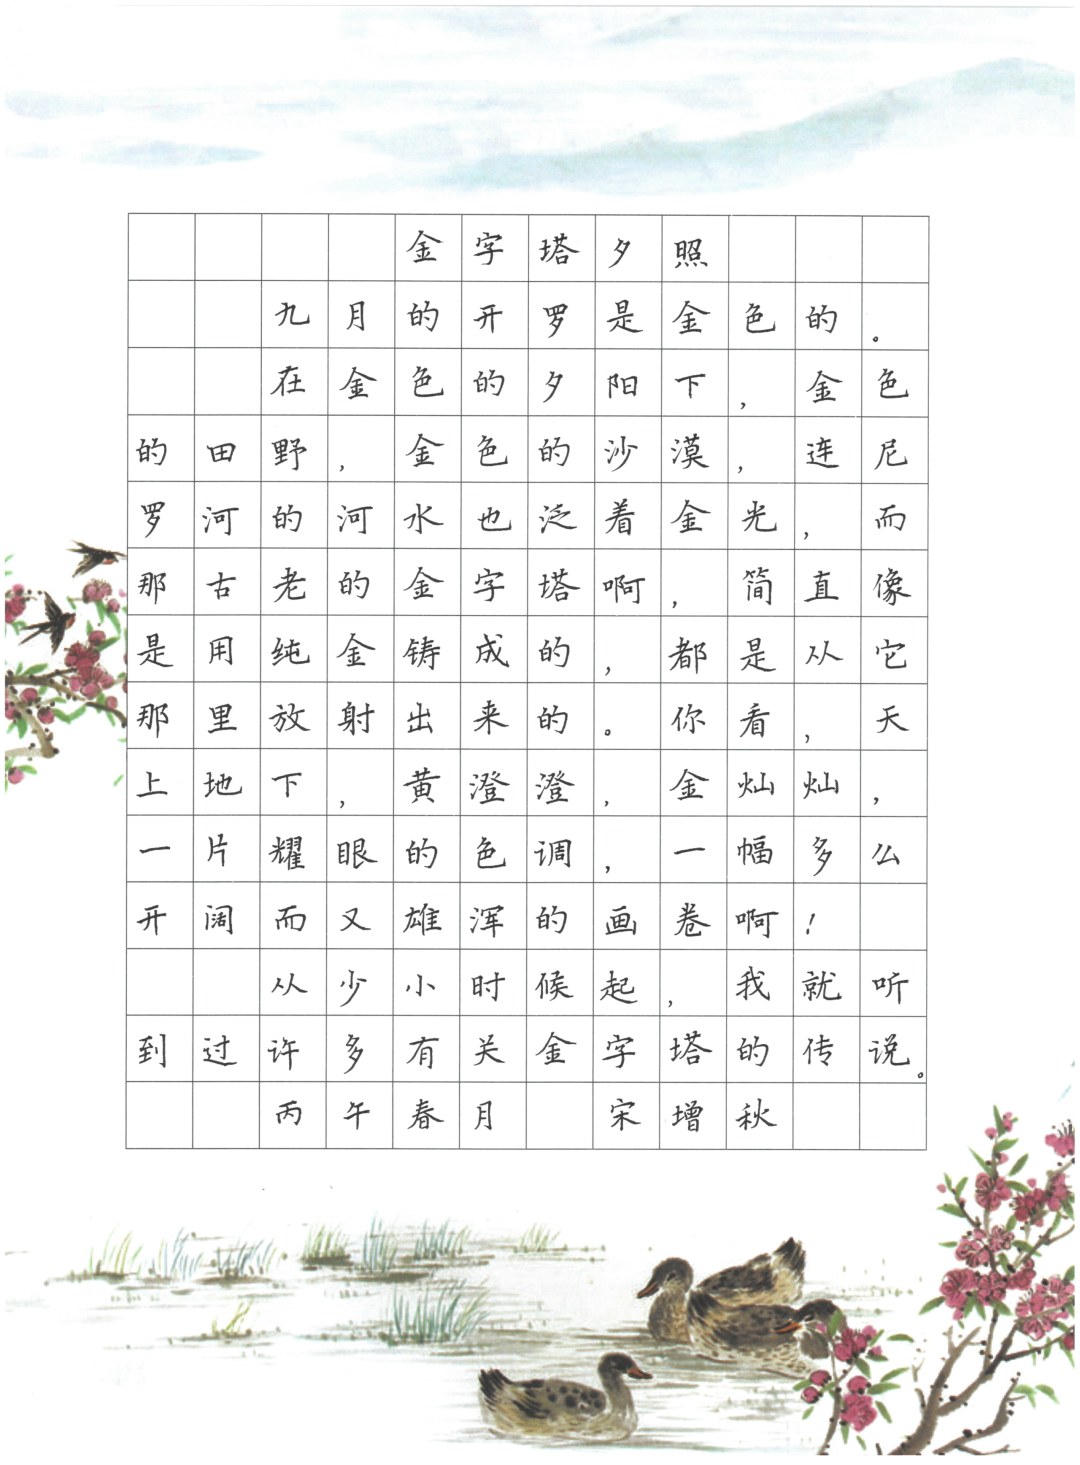 金字塔夕照
九月的开罗是金色的。
在金色的夕阳下，金色
的田野，金色的沙漠，连尼
罗河的河水也泛着金光，而
那古老的金字塔啊，简直像
是用纯金铸成的，都是从它
那里放射出来的。你看，天
上地下，黄澄澄，金灿灿，
一片耀眼的色调，一幅多么
开阔而又雄浑的画卷啊！
从少小时候起，我就听
到过许多有关金字塔的传说。
丙午春月 宋增秋